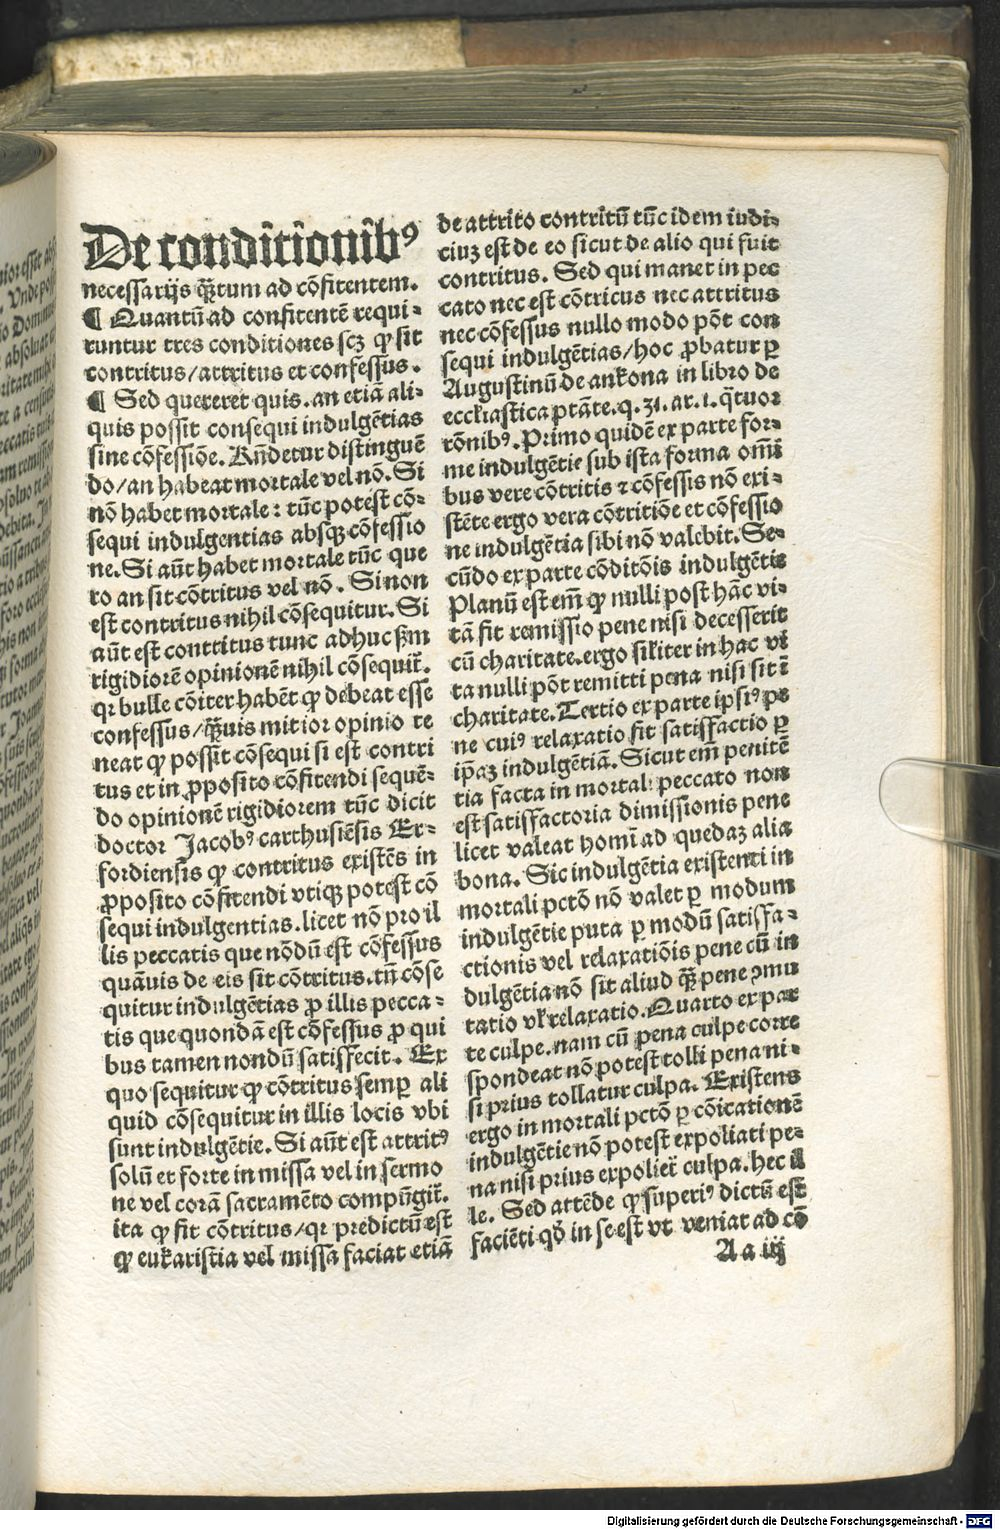 De conditionibꝰ
necessarijs qͣ̄tum ad cōfitentem.
¶ Quantū ad confitentē requi-
runtur tres conditiones scꝫ ꝙ sit
contritus/attritus et confessus.
¶ Sed quereret quis. an etiā ali-
quis possit consequi indulgētias
sine cōfessiōe. Rn̄detur distinguē
do/an habeat mortale vel nō. Si
nō habet mortale: tūc potest cō-
sequi indulgentias absqꝫ cōfessio
ne. Si aūt habet mortale tūc que
ro an sit cōtritus vel nō. Si non
est contritus nihil cōsequitur. Si
aūt est contritus tunc adhuc ẜm
rigidiorē opinionē nihil cōsequit̄.
qꝛ bulle cōiter habēt ꝙ debeat esse
confessus/qͣ̄uis mitior opinio te
neat ꝙ possit cōsequi si est contri
tus et in ꝓposito cōfitendi sequē-
do opinionē rigidiorem tūc dicit
doctor Jacobꝰ carthusiēsis Er-
fordiensis ꝙ contritus existēs in
ꝓposito cōfitendi vtiqꝫ potest cō
sequi indulgentias. licet nō pro il
lis peccatis que nōdū est cōfessus
quāuis de eis sit cōtritus. tn̄ cōse
quitur indulgētias ꝓ illis pecca-
tis que quondā est cōfessus ꝓ qui
bus tamen nondū satisfecit. Ex
quo sequitur ꝙ cōtritus semꝑ ali
quid cōsequitur in illis locis vbi
sunt indulgētie. Si aūt est attritꝰ
solū et forte in missa vel in sermo
ne vel corā sacramēto compūgit̄.
ita ꝙ fit cōtritus/qꝛ predictū est
ꝙ eukaristia vel missa faciat etiā
de attrito contritū tūc idem iudi-
ciuꝫ est de eo sicut de alio qui fuit
contritus. Sed qui manet in pec
cato nec est cōtricus nec attritus
nec cōfessus nullo modo pōt con
sequi indulgētias/hoc ꝓbatur ꝑ
Augustinū de ankona in libro de
eccl̄iastica ptāte. q. 31. ar. 1. q̈tuor
rōnibꝰ. Primo quidē ex parte for-
me indulgētie sub ista forma om̄i
bus vere cōtritis ⁊ cōfessis nō exi-
stēte ergo vera cōtritiōe et cōfessio
ne indulgētia sibi nō valebit. Se-
cūdo ex parte cōditōis indulgētie
Planū est em̄ ꝙ nulli post hāc vi-
tā fit remissio pene nisi decesserit
cū charitate. ergo sil̄iter in hac vi
ta nulli pōt remitti pena nisi sit ī
charitate. Tertio ex parte ipsiꝰ pe
ne cuiꝰ relaxatio fit satisfactio ꝑ
ip̄aꝫ indulgētiā. Sicut em̄ penitē
tia facta in mortali peccato non
est satisfactoria dimissionis pene
licet valeat homī ad quedaꝫ alia
bona. Sic indulgētia existenti in
mortali pctō nō valet ꝑ modum
indulgētie puta ꝑ modū satisfa-
ctionis vel relaxatiōis pene cū in
dulgētia nō sit aliud qͣ̄ pene ꝯmu
tatio vl̄ relaxatio. Quarto ex par
te culpe. nam cū pena culpe corre
spondeat nō potest tolli pena ni-
si prius tollatur culpa. Existens
ergo in mortali pctō ꝑ cōicationē
indulgētie nō potest expoliati pe-
na nisi prius expoliet̄ culpa. hec il
le. Sed attēde ꝙ superiꝰ dictū est
faciēti qd̄ in se est vt veniat ad cō
A a iij
Digitalisierung gefördert durch die Deutsche Forschungsgemeinschaft - DFG